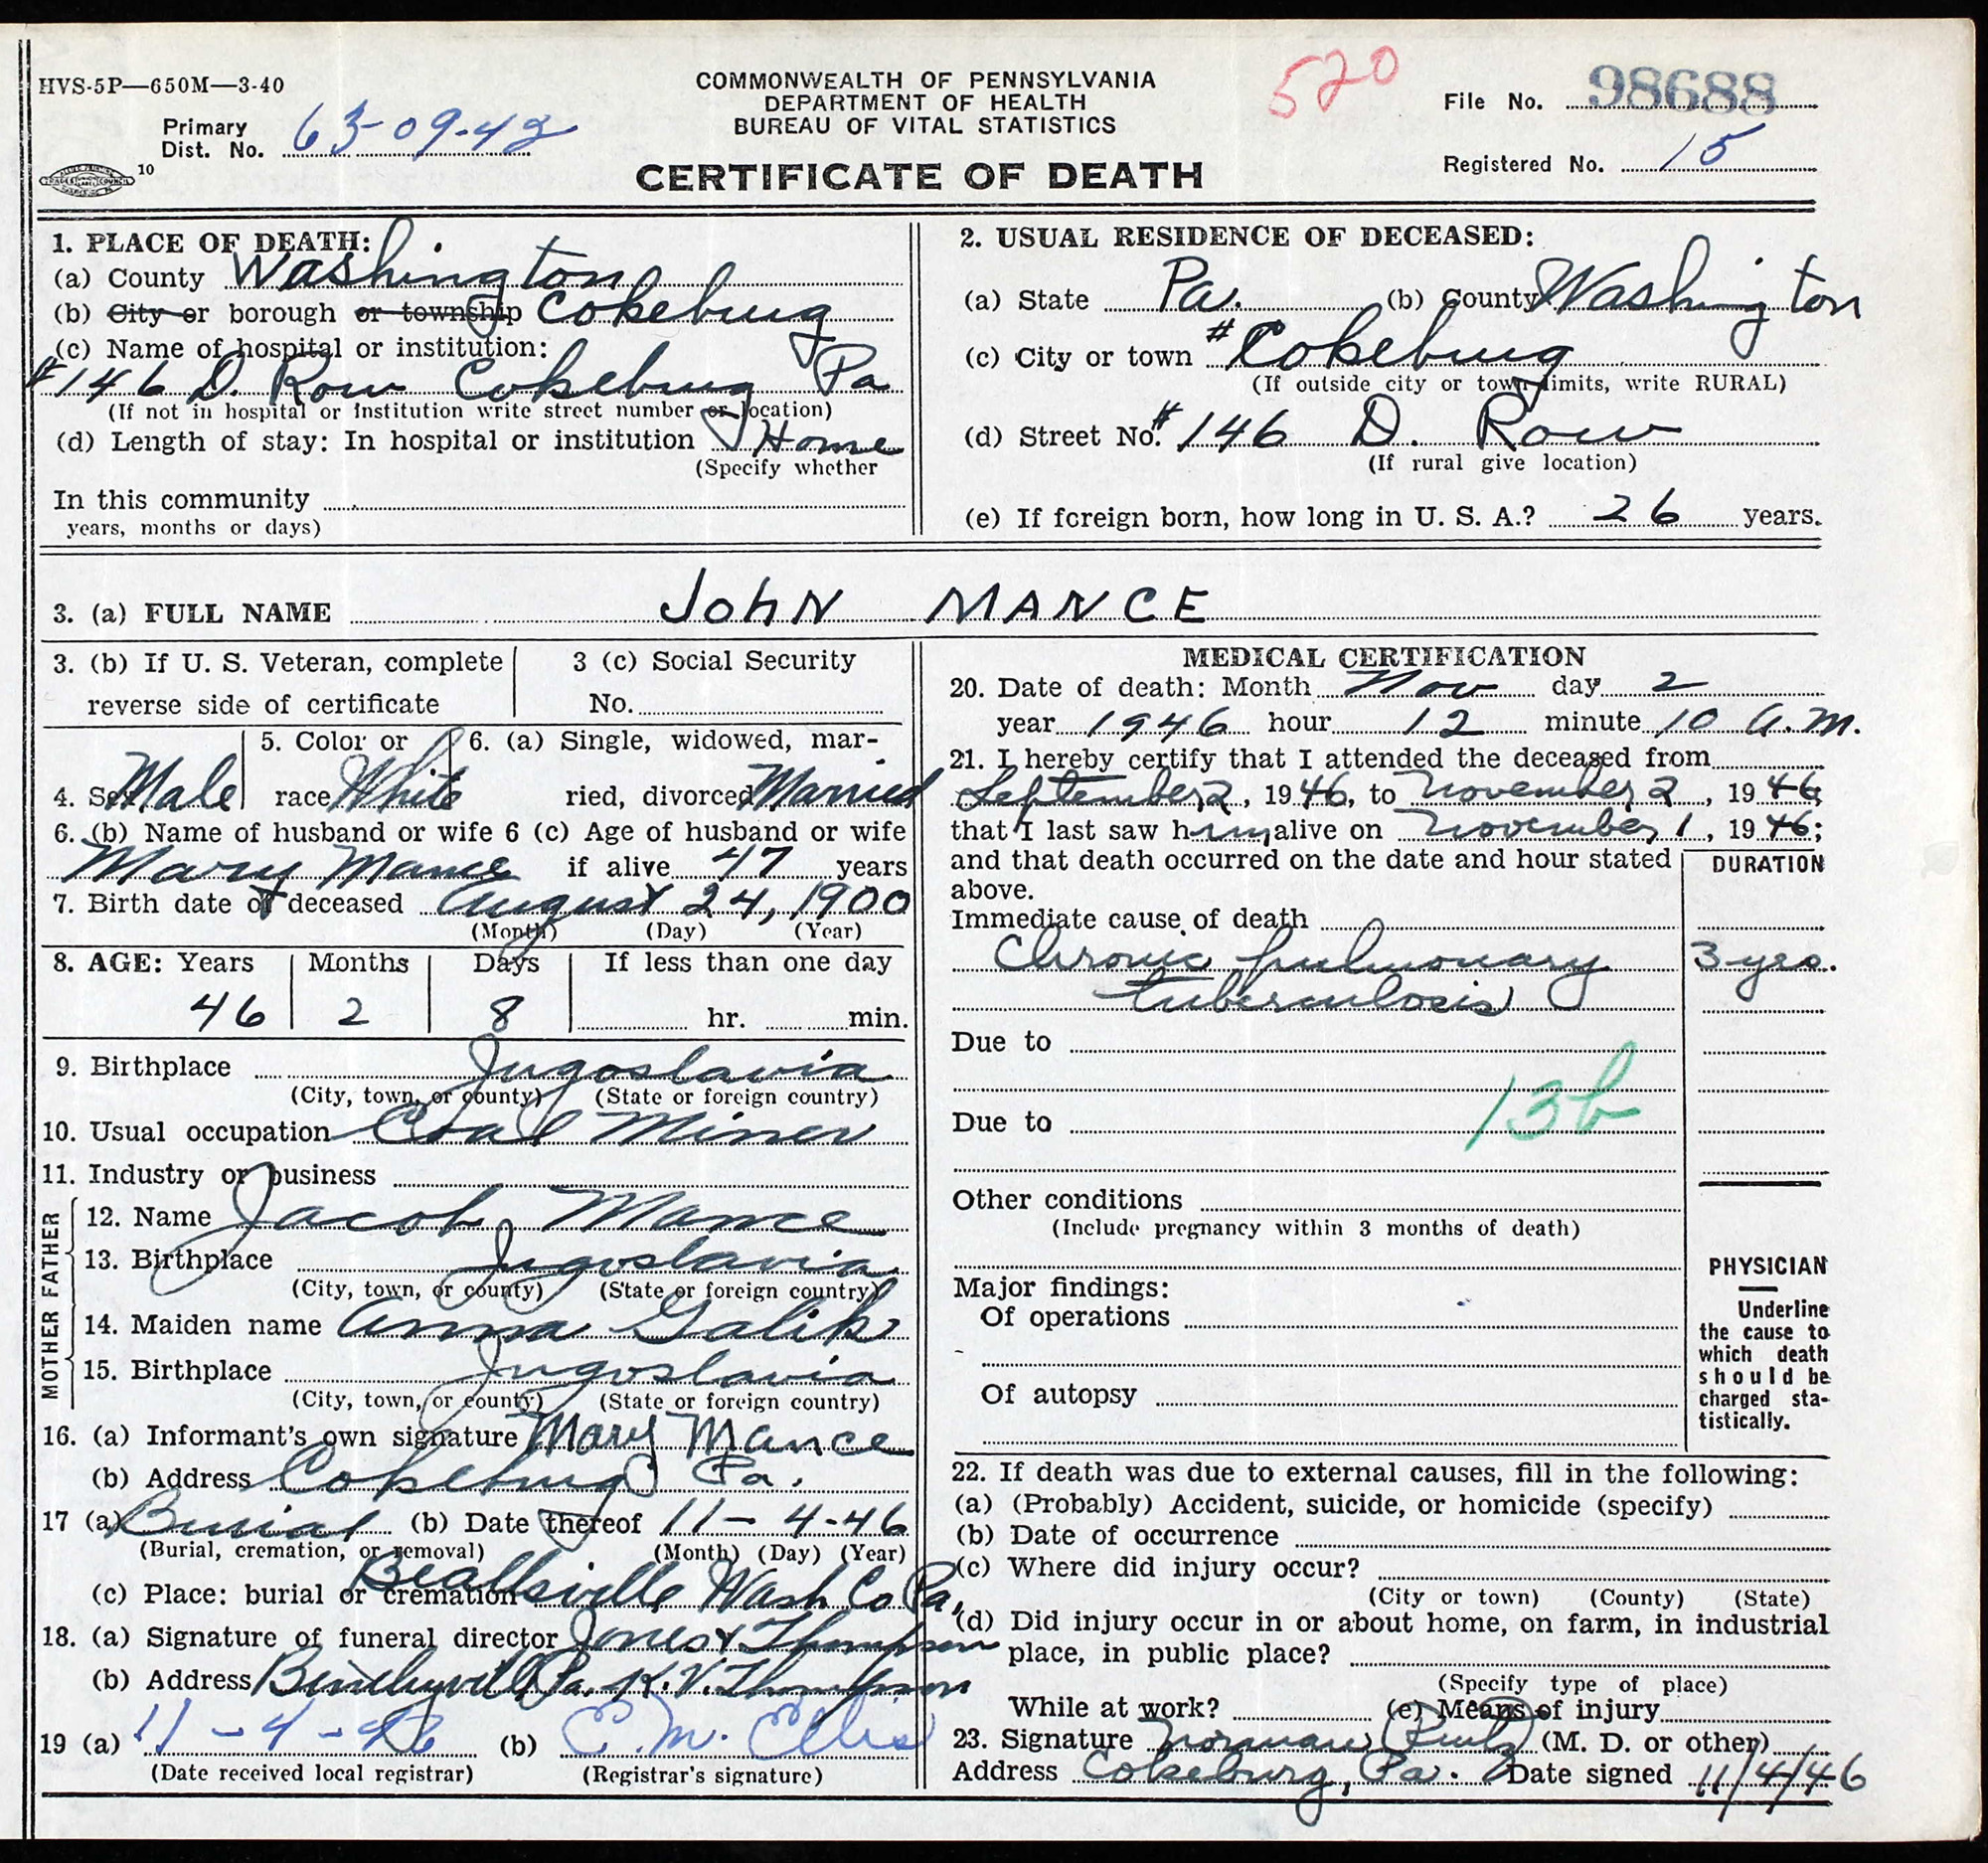 HVS-5P—650M—3-40
COMMONWEALTH OF PENNSYLVANIA
DEPARTMENT OF HEALTH
BUREAU OF VITAL STATISTICS
CERTIFICATE OF DEATH
520
File No. 98688
Registered No. 15
Primary
Dist. No. 63-09-42
10
1. PLACE OF DEATH:
(a) County Washington
(b) City or borough or township Cokeburg
(c) Name of hospital or institution:
#146 D. Row Cokeburg Pa
(If not in hospital or institution write street number or location)
(d) Length of stay: In hospital or institution Home
(Specify whether
In this community
years, months or days)
2. USUAL RESIDENCE OF DECEASED:
(a) State Pa. (b) County Washington
(c) City or town # Cokeburg
(If outside city or town limits, write RURAL)
(d) Street No. #146 D. Row
(If rural give location)
(e) If foreign born, how long in U. S. A.? 26 years.
3. (a) FULL NAME JohN MANCE
3. (b) If U. S. Veteran, complete
reverse side of certificate
3 (c) Social Security
No.
4. Sex Male
5. Color or
race White
6. (a) Single, widowed, mar-
ried, divorced Married
6. (b) Name of husband or wife
Mary Mance
6 (c) Age of husband or wife
if alive 47 years
7. Birth date of deceased August 24, 1900
(Month) (Day) (Year)
8. AGE: Years Months Days If less than one day
46 2 8 hr. min.
9. Birthplace Jugoslavia
(City, town, or county) (State or foreign country)
10. Usual occupation Coal Miner
11. Industry or business
FATHER
12. Name Jacob Mance
13. Birthplace Jugoslavia
(City, town, or county) (State or foreign country)
MOTHER
14. Maiden name Anna Galik
15. Birthplace Jugoslavia
(City, town, or county) (State or foreign country)
16. (a) Informant's own signature Mary Mance
(b) Address Cokeburg Pa.
17 (a) Burial (b) Date thereof 11-4-46
(Burial, cremation, or removal) (Month) (Day) (Year)
(c) Place: burial or cremation Beallsville Wash Co Pa.
18. (a) Signature of funeral director Jones & Thompson
(b) Address Pa. K. V. Thompson
19 (a) 11-4-46 (b) E. M. Ellis
(Date received local registrar) (Registrar's signature)
MEDICAL CERTIFICATION
20. Date of death: Month Nov day 2
year 1946 hour 12 minute 10 A.M.
21. I hereby certify that I attended the deceased from
September 2, 1946, to November 2, 1946;
that I last saw him alive on November 1, 1946;
and that death occurred on the date and hour stated
above.
DURATION
Immediate cause of death
Chronic pulmonary 3 yrs.
tuberculosis
Due to
13b
Due to
Other conditions
(Include pregnancy within 3 months of death)
Major findings:
Of operations
Of autopsy
PHYSICIAN
Underline
the cause to
which death
should be
charged sta-
tistically.
22. If death was due to external causes, fill in the following:
(a) (Probably) Accident, suicide, or homicide (specify)
(b) Date of occurrence
(c) Where did injury occur?
(City or town) (County) (State)
(d) Did injury occur in or about home, on farm, in industrial
place, in public place?
(Specify type of place)
While at work? (e) Means of injury
23. Signature Norman (M. D. or other)
Address Cokeburg, Pa. Date signed 11/4/46